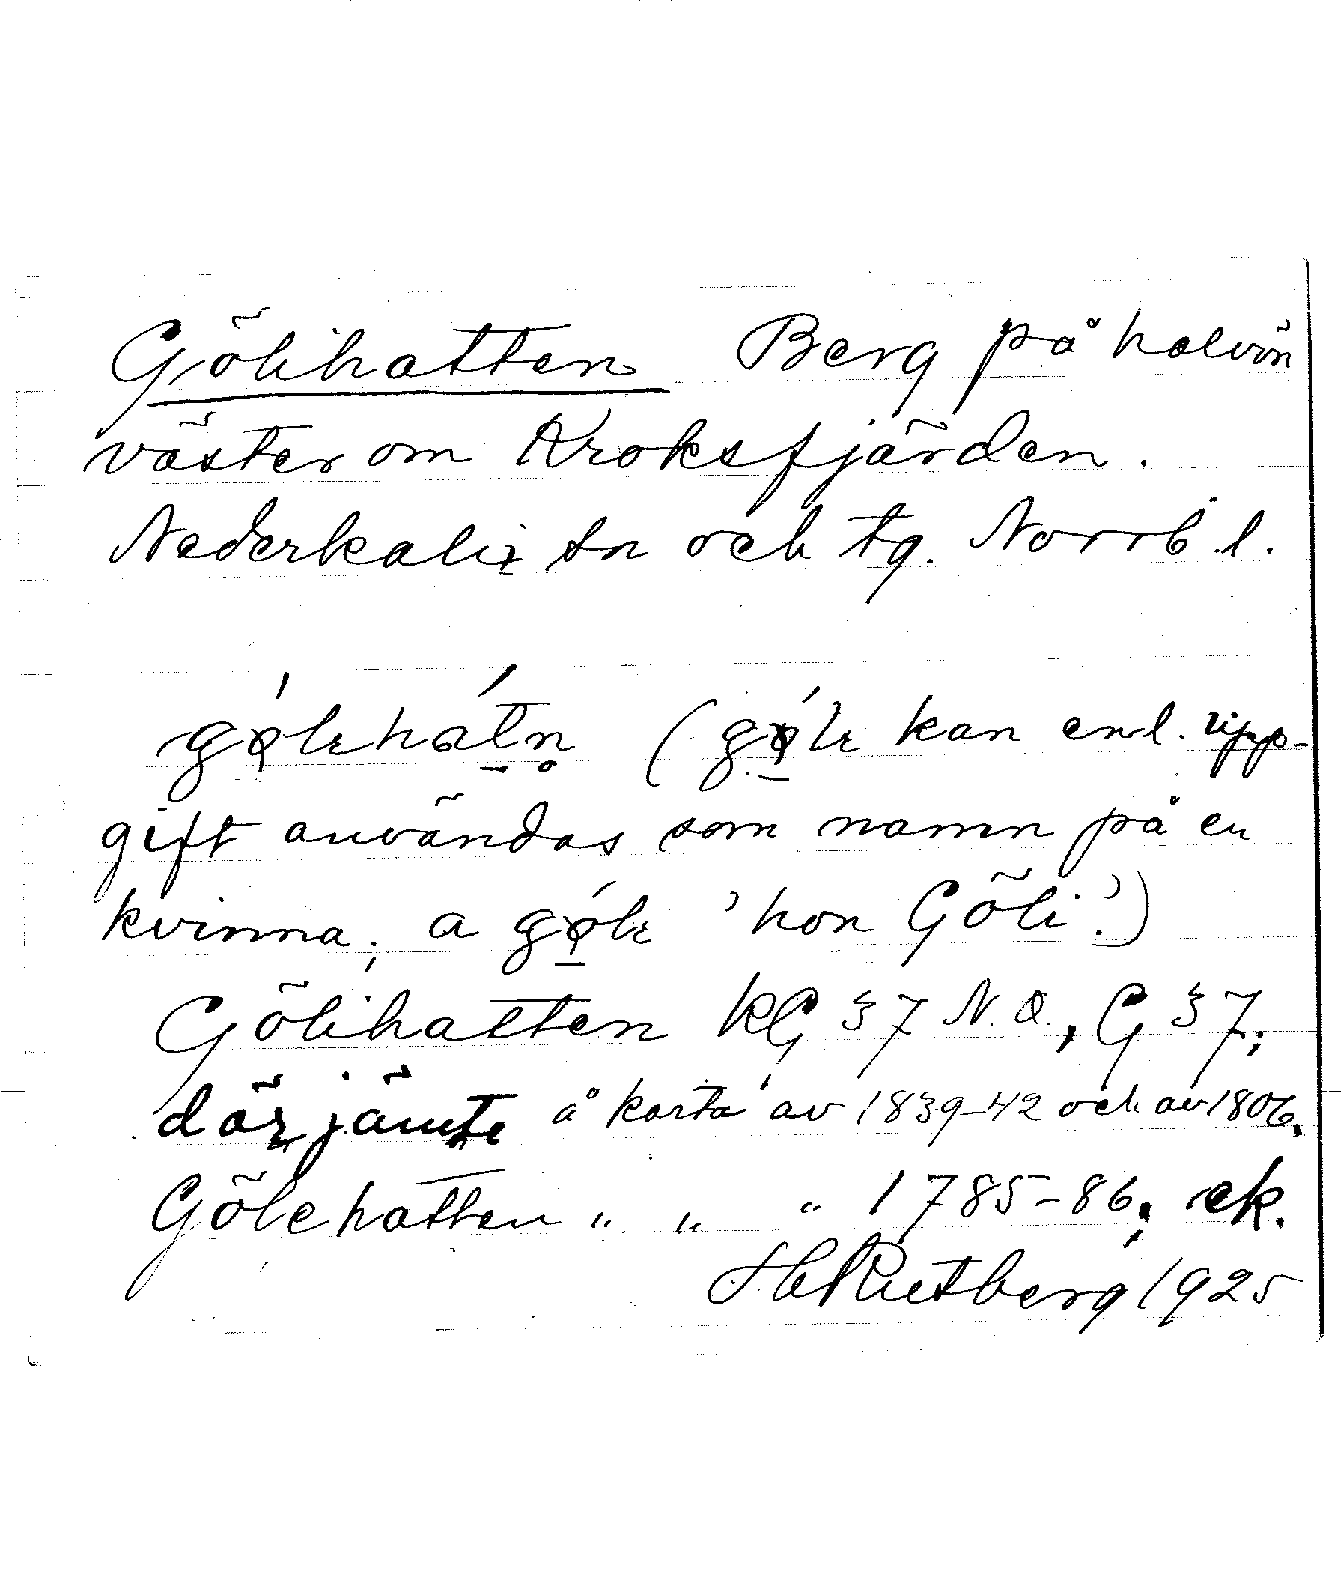 Gölihatten Berg på halvön
väster om Kroksfjärden.
Nederkalix sn och tg. Norrb. l.
gǿlɩhát̠n̥ (gǿ̠lɩ kan enl. upp-
gift användas som namn på en
kvinna; a gǿ̠lɩ 'hon Göli'.)
Gölihatten kG 37 N.O., G 37;
därjämte å karta av 1839-42 och av 1806.
Gölehatten " " " 1785-86; ek.
H Rutberg 1925